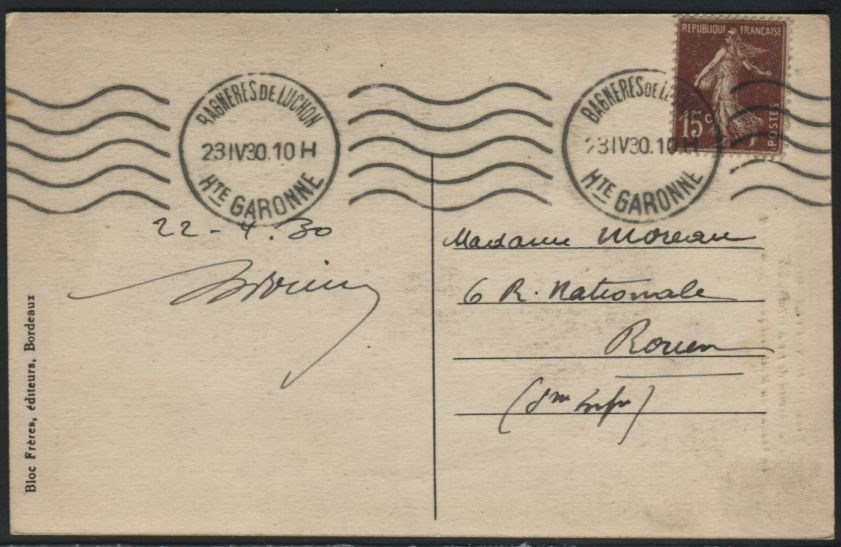 REPUBLIQUE FRANÇAISE
15c
POSTES
BAGNERES DE LUCHON
23 IV 30. 10 H
HTE GARONNE
BAGNERES DE LUCHON
23 IV 30. 10 H
HTE GARONNE
22 - 4. 30
Madame Moreau
6 R. Nationale
Rouen
Bloc Frères, éditeurs, Bordeaux